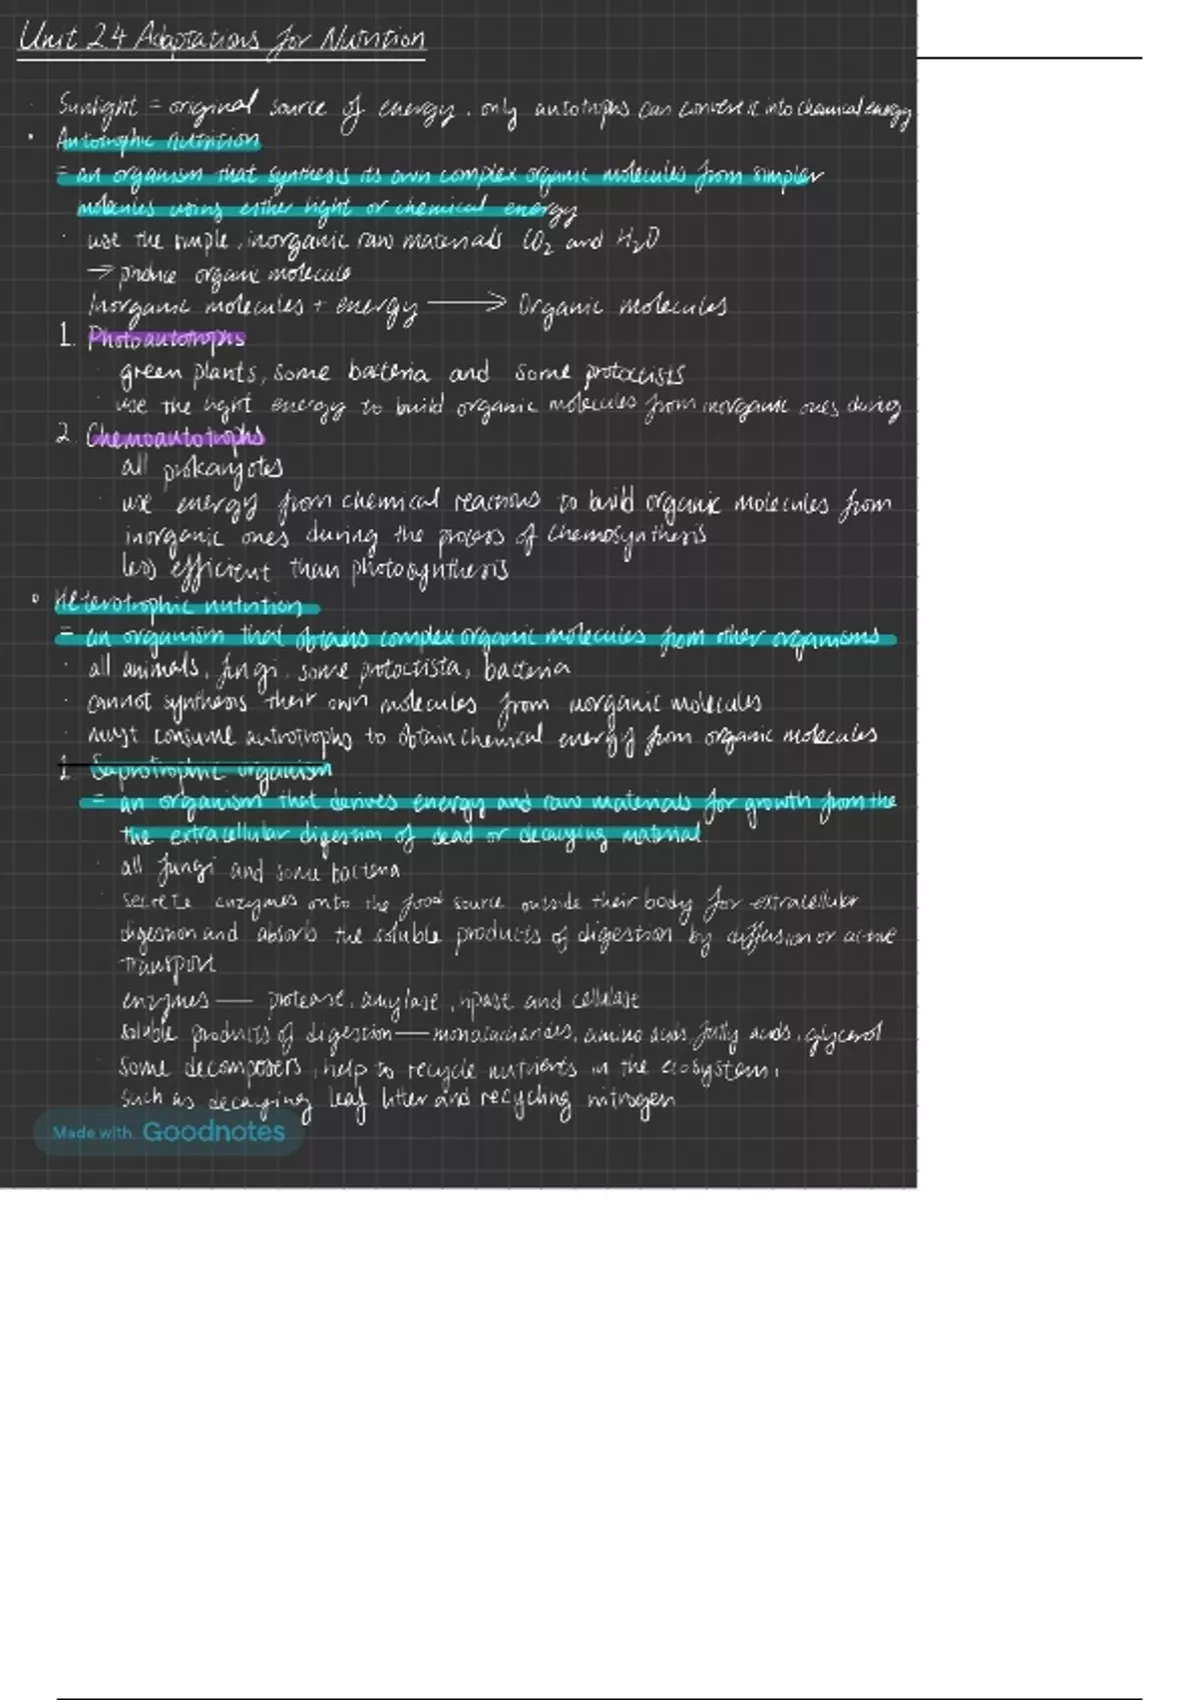 Unit 2.4 Adaptations for Nutrition
Sunlight = original source of energy. only autotrophs can convert it into chemical energy
Autotrophic nutrition
= an organism that synthesis its own complex organic molecules from simpler
molecules using either light or chemical energy
use the simple, inorganic raw materials CO₂ and H₂O
→ produce organic molecule
Inorganic molecules + energy ⟶ Organic molecules
1. Photoautotrophs
green plants, some bacteria and some protoctists
use the light energy to build organic molecules from inorganic ones during
2. Chemoautotrophs
all prokaryotes
use energy from chemical reactions to build organic molecules from
inorganic ones during the process of chemosynthesis
less efficient than photosynthesis
Heterotrophic nutrition
= an organism that obtains complex organic molecules from other organisms
all animals, fungi, some protoctista, bacteria
cannot synthesis their own molecules from inorganic molecules
must consume autrotrophs to obtain chemical energy from organic molecules
1 Saprotrophic organism
= an organism that derives energy and raw materials for growth from the
the extracellular digestion of dead or decaying material
all fungi and some bacteria
secrete enzymes onto the food source outside their body for extracellular
digestion and absorb the soluble products of digestion by diffusion or active
transport
enzymes — protease, amylase, lipase and cellulase
soluble products of digestion — monosaccharides, amino acids, fatty acids, glycerol
Some decomposers, help to recycle nutrients in the ecosystem,
such as decaying leaf litter and recycling nitrogen
Made with Goodnotes